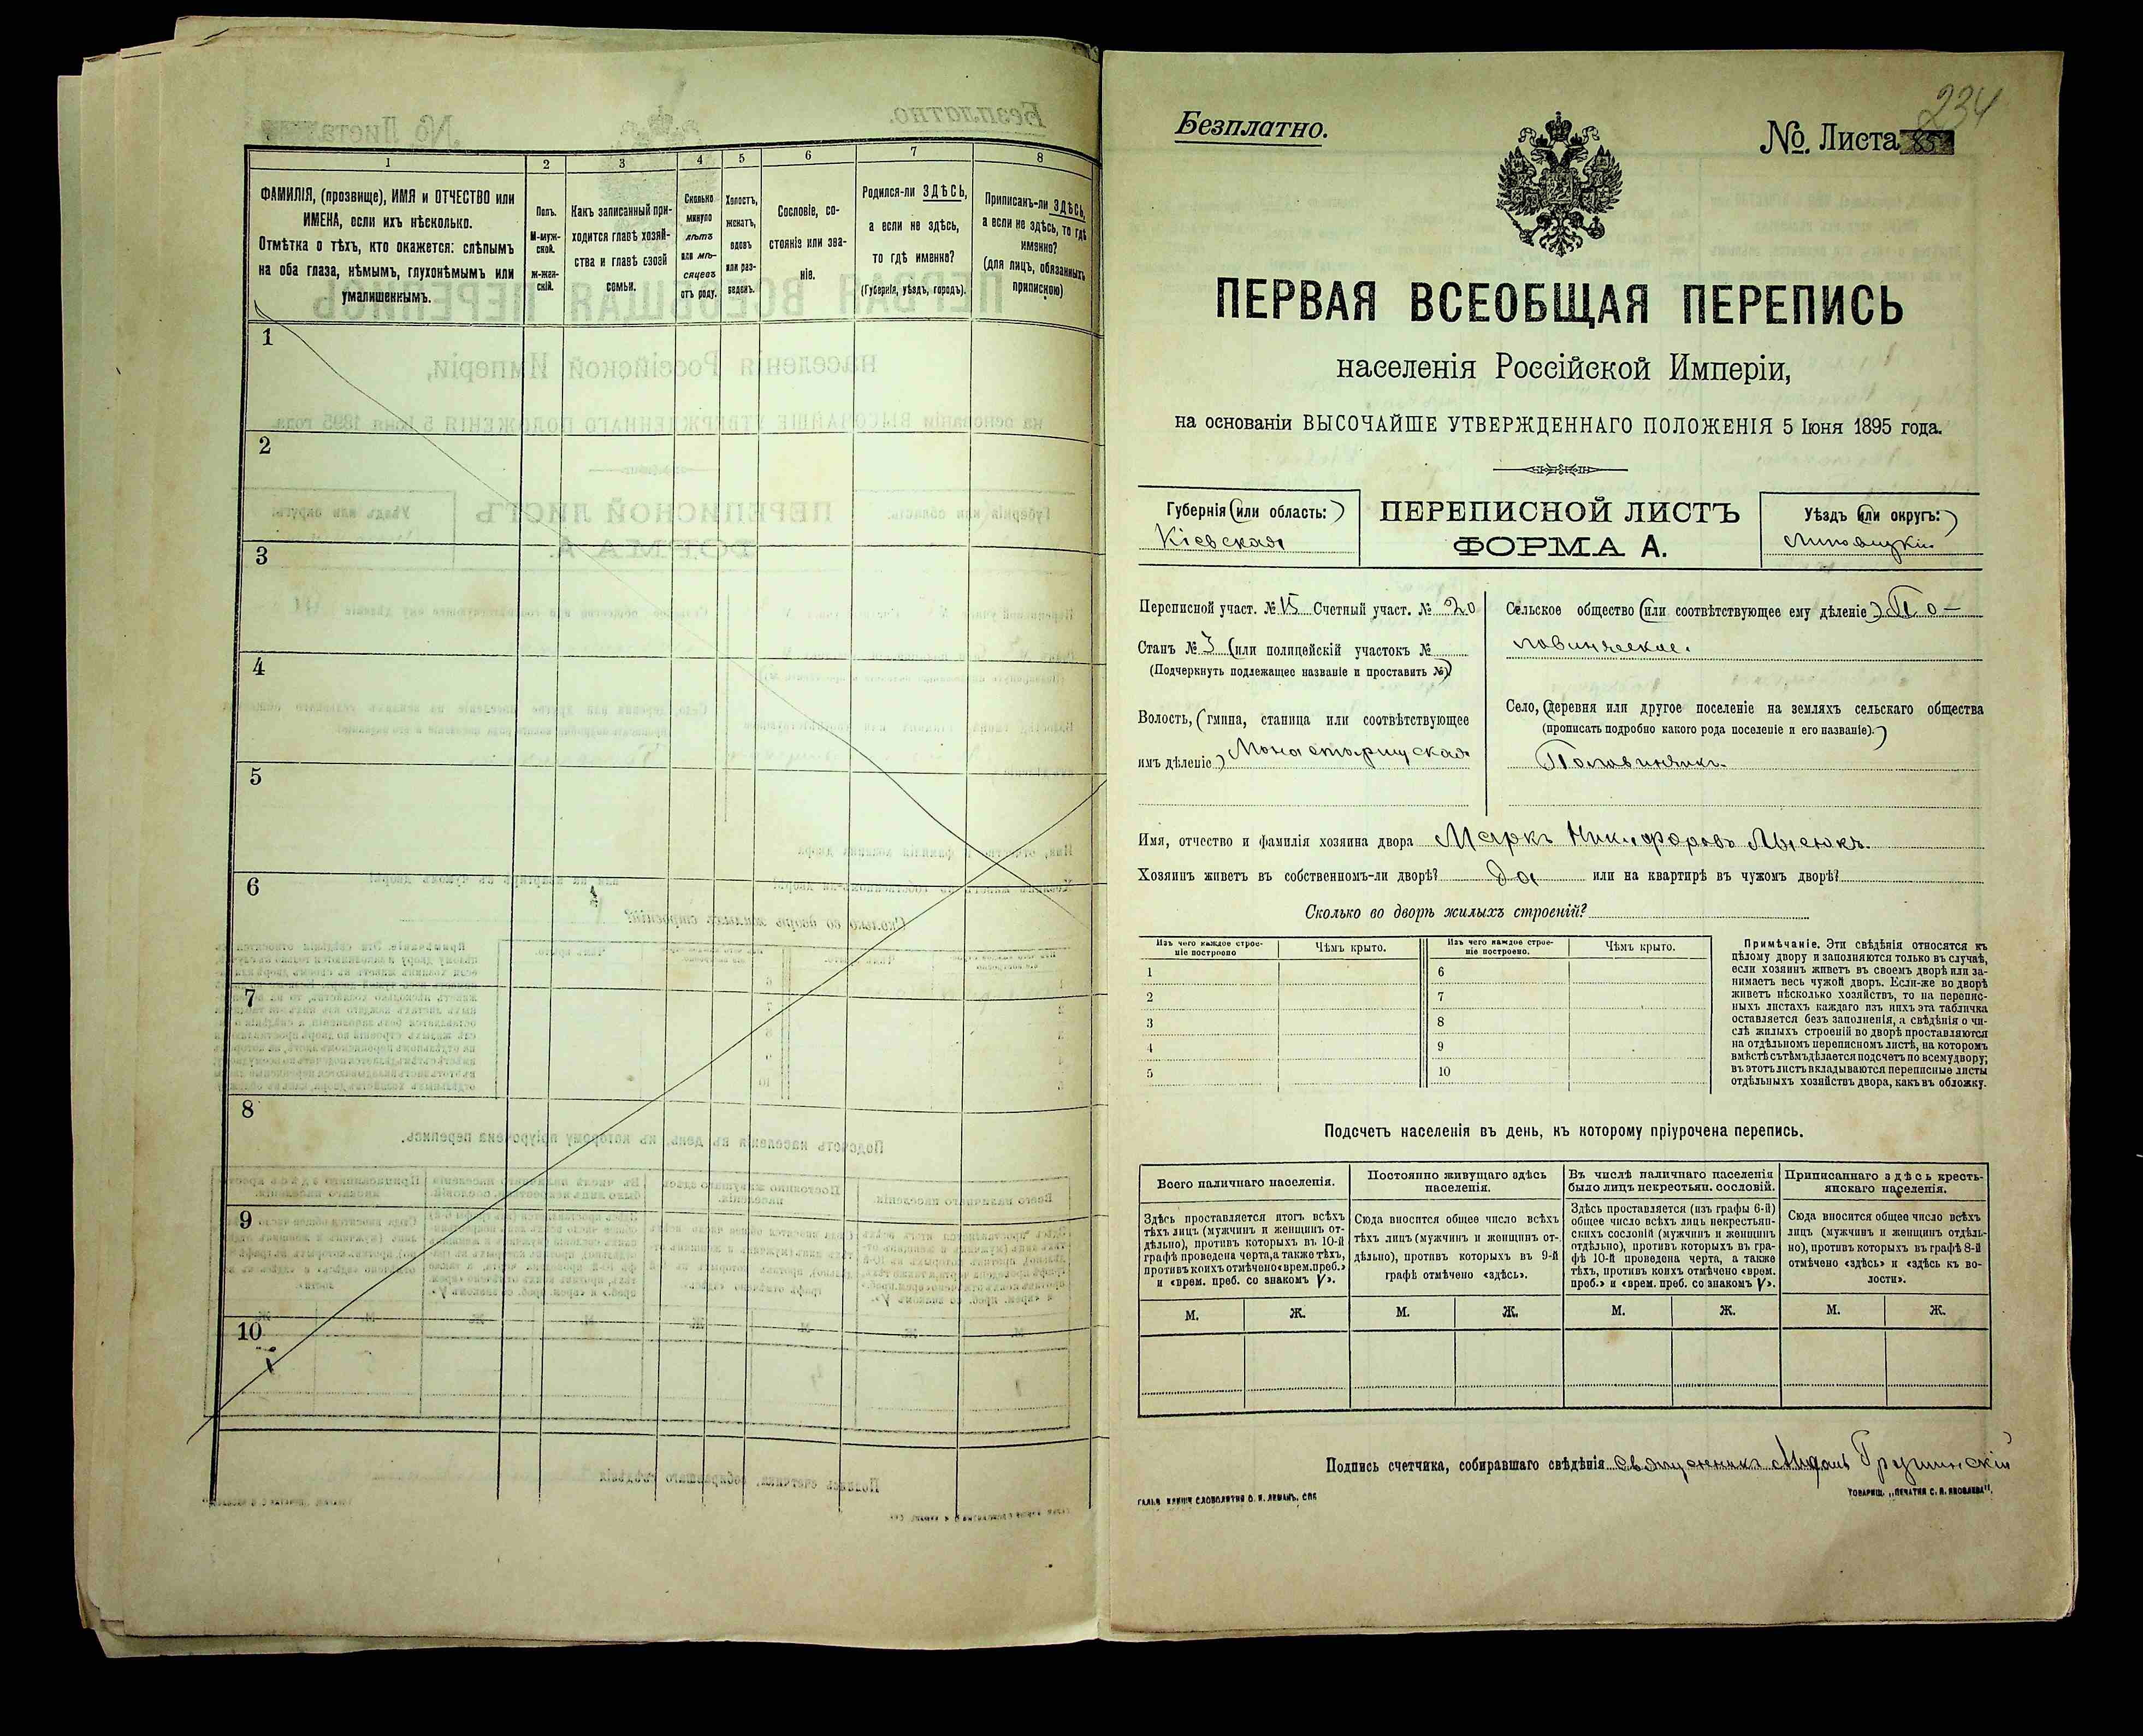 1
2
3
4
5
6
7
8
ФАМИЛІЯ, (прозвище), ИМЯ и ОТЧЕСТВО или
ИМЕНА, если ихъ нѣсколько.
Отмѣтка о тѣхъ, кто окажется: слѣпымъ
на оба глаза, нѣмымъ, глухонѣмымъ или
умалишеннымъ.
Полъ.
М-муж-
ской.
ж-жен-
скій.
Какъ записанный при-
ходится главѣ хозяй-
ства и главѣ своей
семьи.
Сколько
минуло
лѣтъ
или мѣ-
сяцевъ
отъ роду.
Холостъ,
женатъ,
вдовъ
или раз-
веденъ.
Сословіе, со-
стояніе или зва-
ніе.
Родился-ли ЗДѢСЬ,
а если не здѣсь,
то гдѣ именно?
(Губернія, уѣздъ, городъ).
Приписанъ-ли ЗДѢСЬ,
а если не здѣсь, то гдѣ
именно?
(для лицъ, обязанныхъ
припискою)
1
2
3
4
5
6
7
8
9
10
234
Безплатно.
№. Листа 85
ПЕРВАЯ ВСЕОБЩАЯ ПЕРЕПИСЬ
населенія Россійской Имперіи,
на основаніи ВЫСОЧАЙШЕ УТВЕРЖДЕННАГО ПОЛОЖЕНІЯ 5 Іюня 1895 года.
Губернія (или область:)
Кіевская
ПЕРЕПИСНОЙ ЛИСТЪ
ФОРМА А.
Уѣздъ (или округъ:)
Липовецкій
Переписной участ. № 15 Счетный участ. № 20
Станъ № 3 (или полицейскій участокъ №
(Подчеркнуть подлежащее названіе и проставить №)
Волость, (гмина, станица или соотвѣтствующее
имъ дѣленіе) Монастырищская
Сельское общество (или соотвѣтствующее ему дѣленіе) По-
ловинчское.
Село, (деревня или другое поселеніе на земляхъ сельскаго общества
(прописать подробно какого рода поселеніе и его названіе).)
Половинчикъ
Имя, отчество и фамилія хозяина двора Маркъ Никифоровъ
Хозяинъ живетъ въ собственномъ-ли дворѣ? да или на квартирѣ въ чужомъ дворѣ?
Сколько во дворѣ жилыхъ строеній?
Изъ чего каждое строе-
ніе построено
Чѣмъ крыто.
Изъ чего каждое строе-
ніе построено.
Чѣмъ крыто.
1
6
2
7
3
8
4
9
5
10
Примѣчаніе. Эти свѣдѣнія относятся къ
цѣлому двору и заполняются только въ случаѣ,
если хозяинъ живетъ въ своемъ дворѣ или за-
нимаетъ весь чужой дворъ. Если-же во дворѣ
живетъ нѣсколько хозяйствъ, то на перепис-
ныхъ листахъ каждаго изъ нихъ эта табличка
оставляется безъ заполненія, а свѣдѣнія о чи-
слѣ жилыхъ строеній во дворѣ проставляются
на отдѣльномъ переписномъ листѣ, на которомъ
вмѣстѣ съ тѣмъ дѣлается подсчетъ по всему двору;
въ этотъ листъ вкладываются переписные листы
отдѣльныхъ хозяйствъ двора, какъ въ обложку.
Подсчетъ населенія въ день, къ которому пріурочена перепись.
Всего наличнаго населенія.
Постоянно живущаго здѣсь
населенія.
Въ числѣ наличнаго населенія
было лицъ некрестьян. сословій.
Приписаннаго здѣсь кресть-
янскаго населенія.
Здѣсь проставляется итогъ всѣхъ
тѣхъ лицъ (мужчинъ и женщинъ от-
дѣльно), противъ которыхъ въ 10-й
графѣ проведена черта, а также тѣхъ,
противъ коихъ отмѣчено «врем. преб.»
и «врем. преб. со знакомъ V».
Сюда вносится общее число всѣхъ
тѣхъ лицъ (мужчинъ и женщинъ от-
дѣльно), противъ которыхъ въ 9-й
графѣ отмѣчено «здѣсь».
Здѣсь проставляется (изъ графы 6-й)
общее число всѣхъ лицъ некрестьян-
скихъ сословій (мужчинъ и женщинъ
отдѣльно), противъ которыхъ въ гра-
фѣ 10-й проведена черта, а также
тѣхъ, противъ коихъ отмѣчено «врем.
преб.» и «врем. преб. со знакомъ V».
Сюда вносится общее число всѣхъ
лицъ (мужчинъ и женщинъ отдѣль-
но), противъ которыхъ въ графѣ 8-й
отмѣчено «здѣсь» и «здѣсь къ во-
лости».
М.
Ж.
М.
Ж.
М.
Ж.
М.
Ж.
Подпись счетчика, собиравшаго свѣдѣнія священникъ
ГАЛЬВ. КЛИШЕ СЛОВОЛИТНИ О. И. ЛЕМАНЪ, СПБ
ТОВАРИЩ. „ПЕЧАТНЯ С. П. ЯКОВЛЕВА".